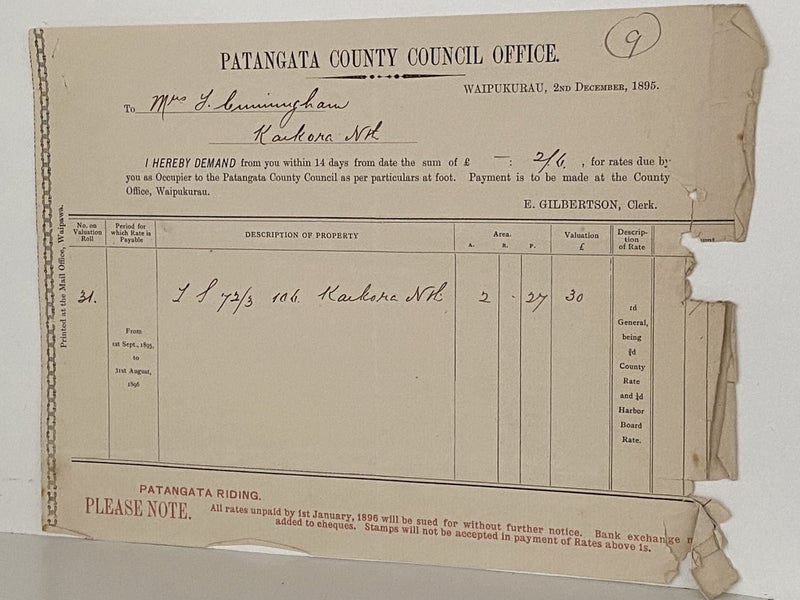 9
PATANGATA COUNTY COUNCIL OFFICE.
WAIPUKURAU, 2ND DECEMBER, 1895.
To Mrs J. Cunningham
Kaikora Nth
I HEREBY DEMAND from you within 14 days from date the sum of £ — : 2/6 , for rates due by
you as Occupier to the Patangata County Council as per particulars at foot. Payment is to be made at the County
Office, Waipukurau.
E. GILBERTSON, Clerk.
No. on Valuation Roll
Period for which Rate is Payable
DESCRIPTION OF PROPERTY
Area.
A. R. P.
Valuation £
Descrip-tion of Rate
31.
72/3 106. Kaikora Nth 2 . 27 30
From
1st Sept., 1895,
to
31st August,
1896
1d
General,
being
¾d
County
Rate
and ¼d
Harbor
Board
Rate.
Printed at the Mail Office, Waipawa.
PATANGATA RIDING.
PLEASE NOTE.
All rates unpaid by 1st January, 1896 will be sued for without further notice. Bank exchange
added to cheques. Stamps will not be accepted in payment of Rates above 1s.